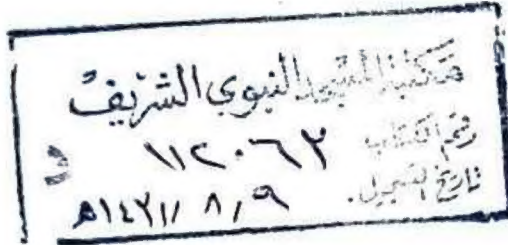 مكتبة المسجد النبوي الشريف
رقم الكتاب ١١٢٠٦٣
تاريخ التسجيل ١٤٣١/٨/٩هـ